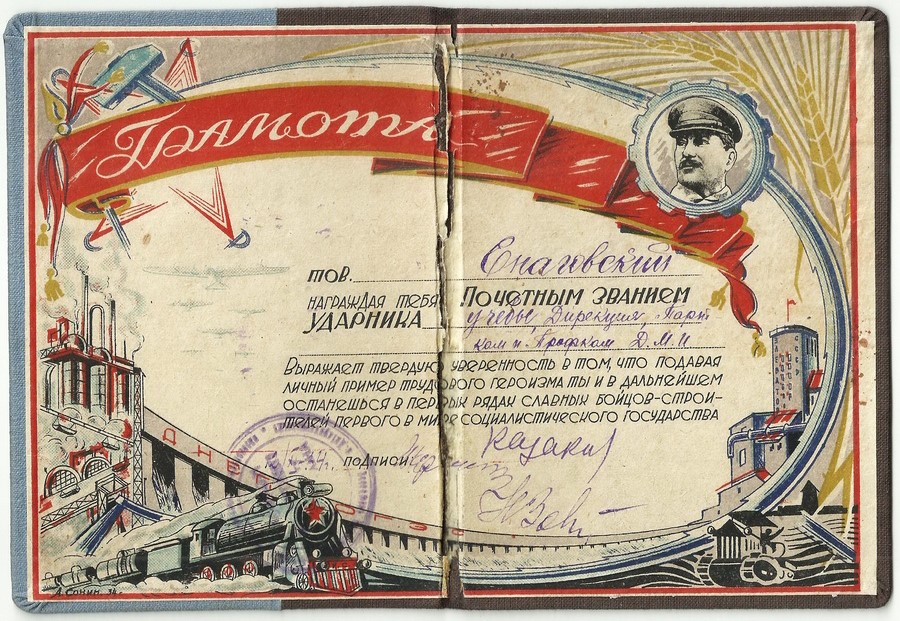 Грамота
тов. Снаговский
награждая тебя Почетным званием
ударника учебы, Дирекция, Парт-
ком и Профком Д.М.И.
Выражает твердую уверенность в том, что подавая
личный пример трудового героизма ты и в дальнейшем
останешься в первых рядах славных бойцов-строи-
телей первого в мире социалистического государства
подписи:
А. Сонин. 34.